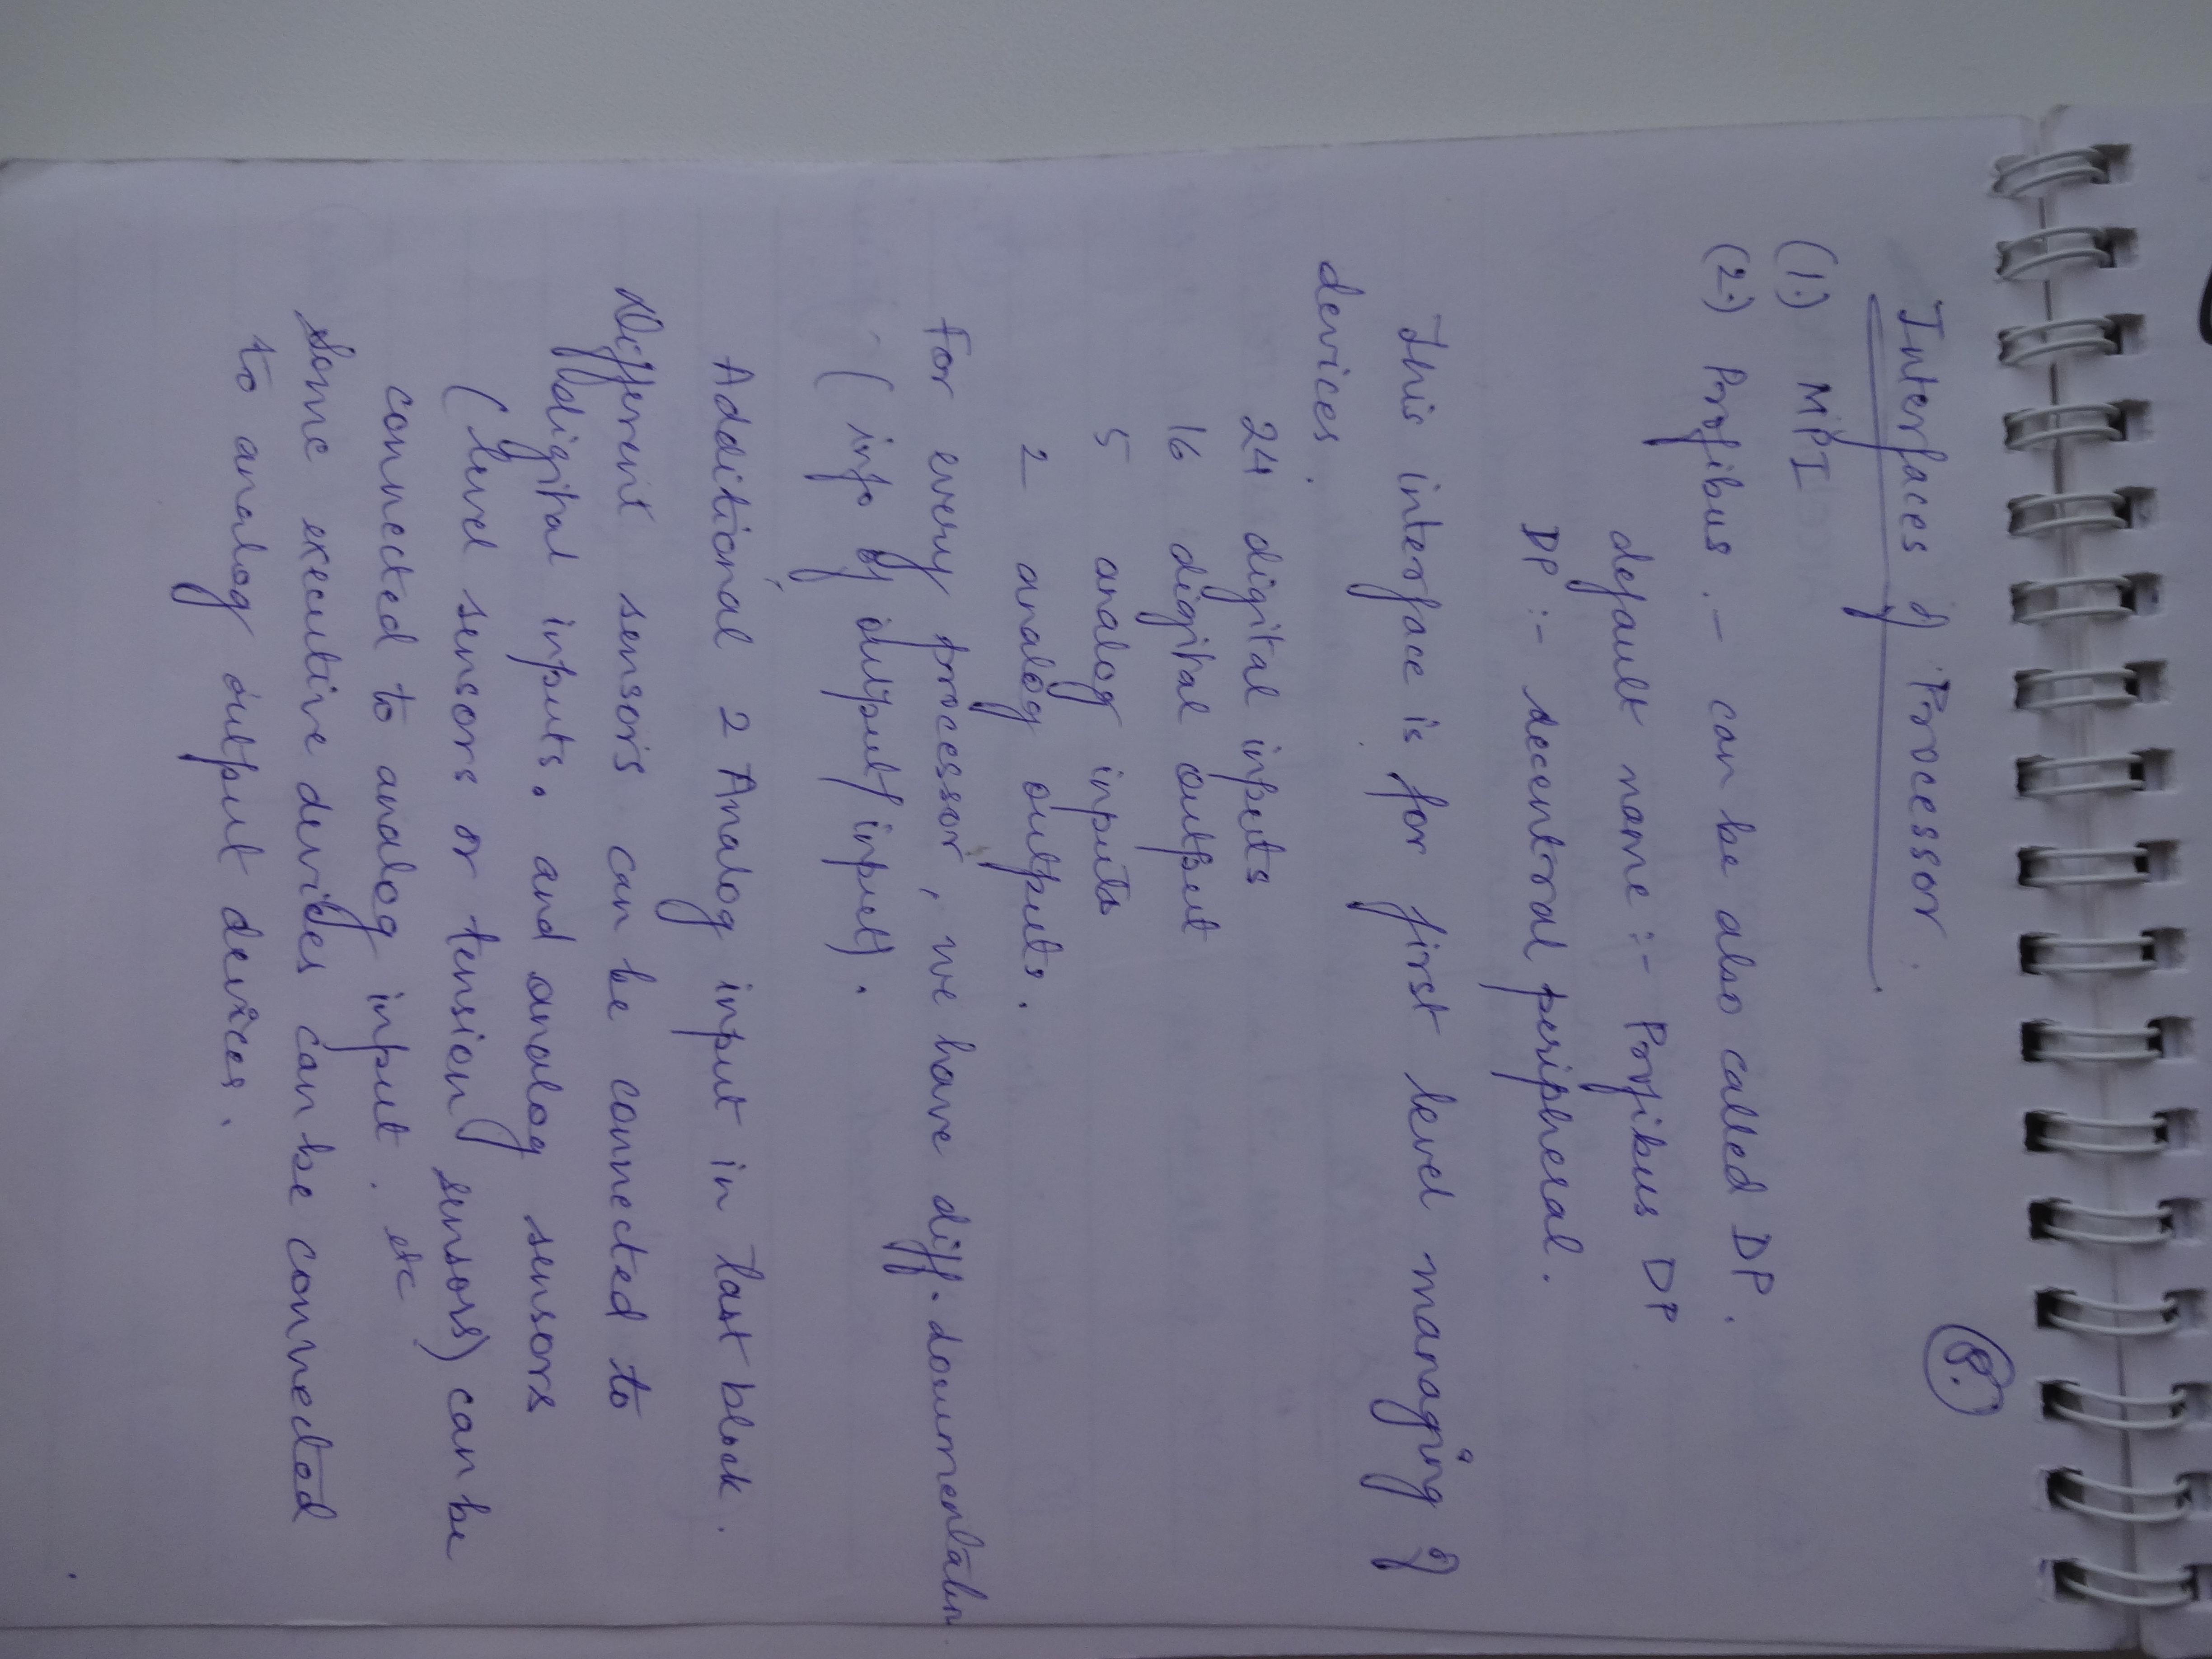 8.
Interfaces of Processor.
(1.) MPI
(2.) Profibus. - can be also called DP.
default name :- Profibus DP
DP :- decentral peripheral.
This interface is for first level managing of
devices.
24 digital inputs
16 digital output
5 analog inputs
2 analog outputs.
For every processor, we have diff. documentation
(info of output/input).
Additional 2 Analog input in last block.
Different sensors can be connected to
digital inputs. and analog sensors
(level sensors or tension sensors) can be
connected to analog input. etc
Some executive devices can be connected
to analog output devices.